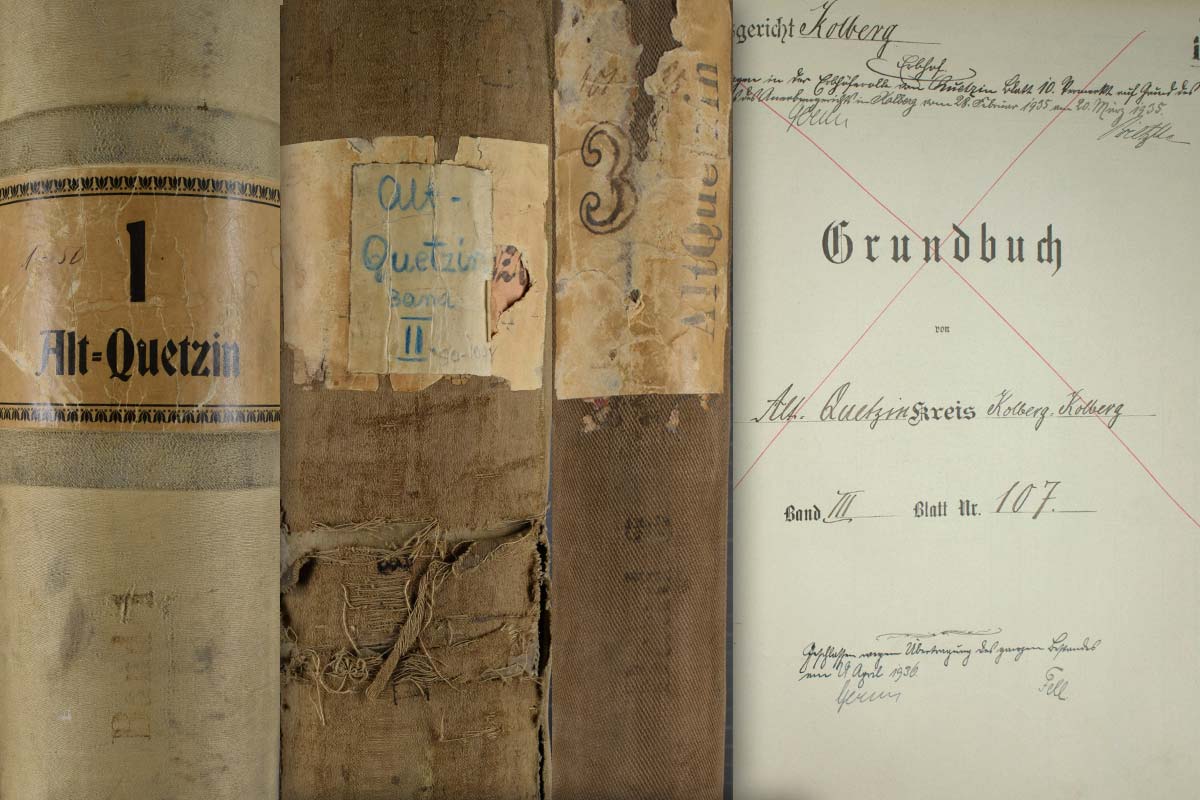 1-50
1
Alt=Quetzin
Band 1
Alt-
Quetzin
Band
II
3
Alt Quetzin
gericht Kolberg
Erbhof
in der Erbhöferolle von Quetzin Blatt 10. Vermerkt auf Grund des
des Anerbengerichts in Kolberg vom 28. Februar 1935 am 20. März 1935.
Grundbuch
von
Alt. Quetzin Kreis Kolberg. Kolberg
Band III Blatt Nr. 107.
Geschlossen wegen Übertragung des ganzen Bestandes
am 29 April 1936
Fell